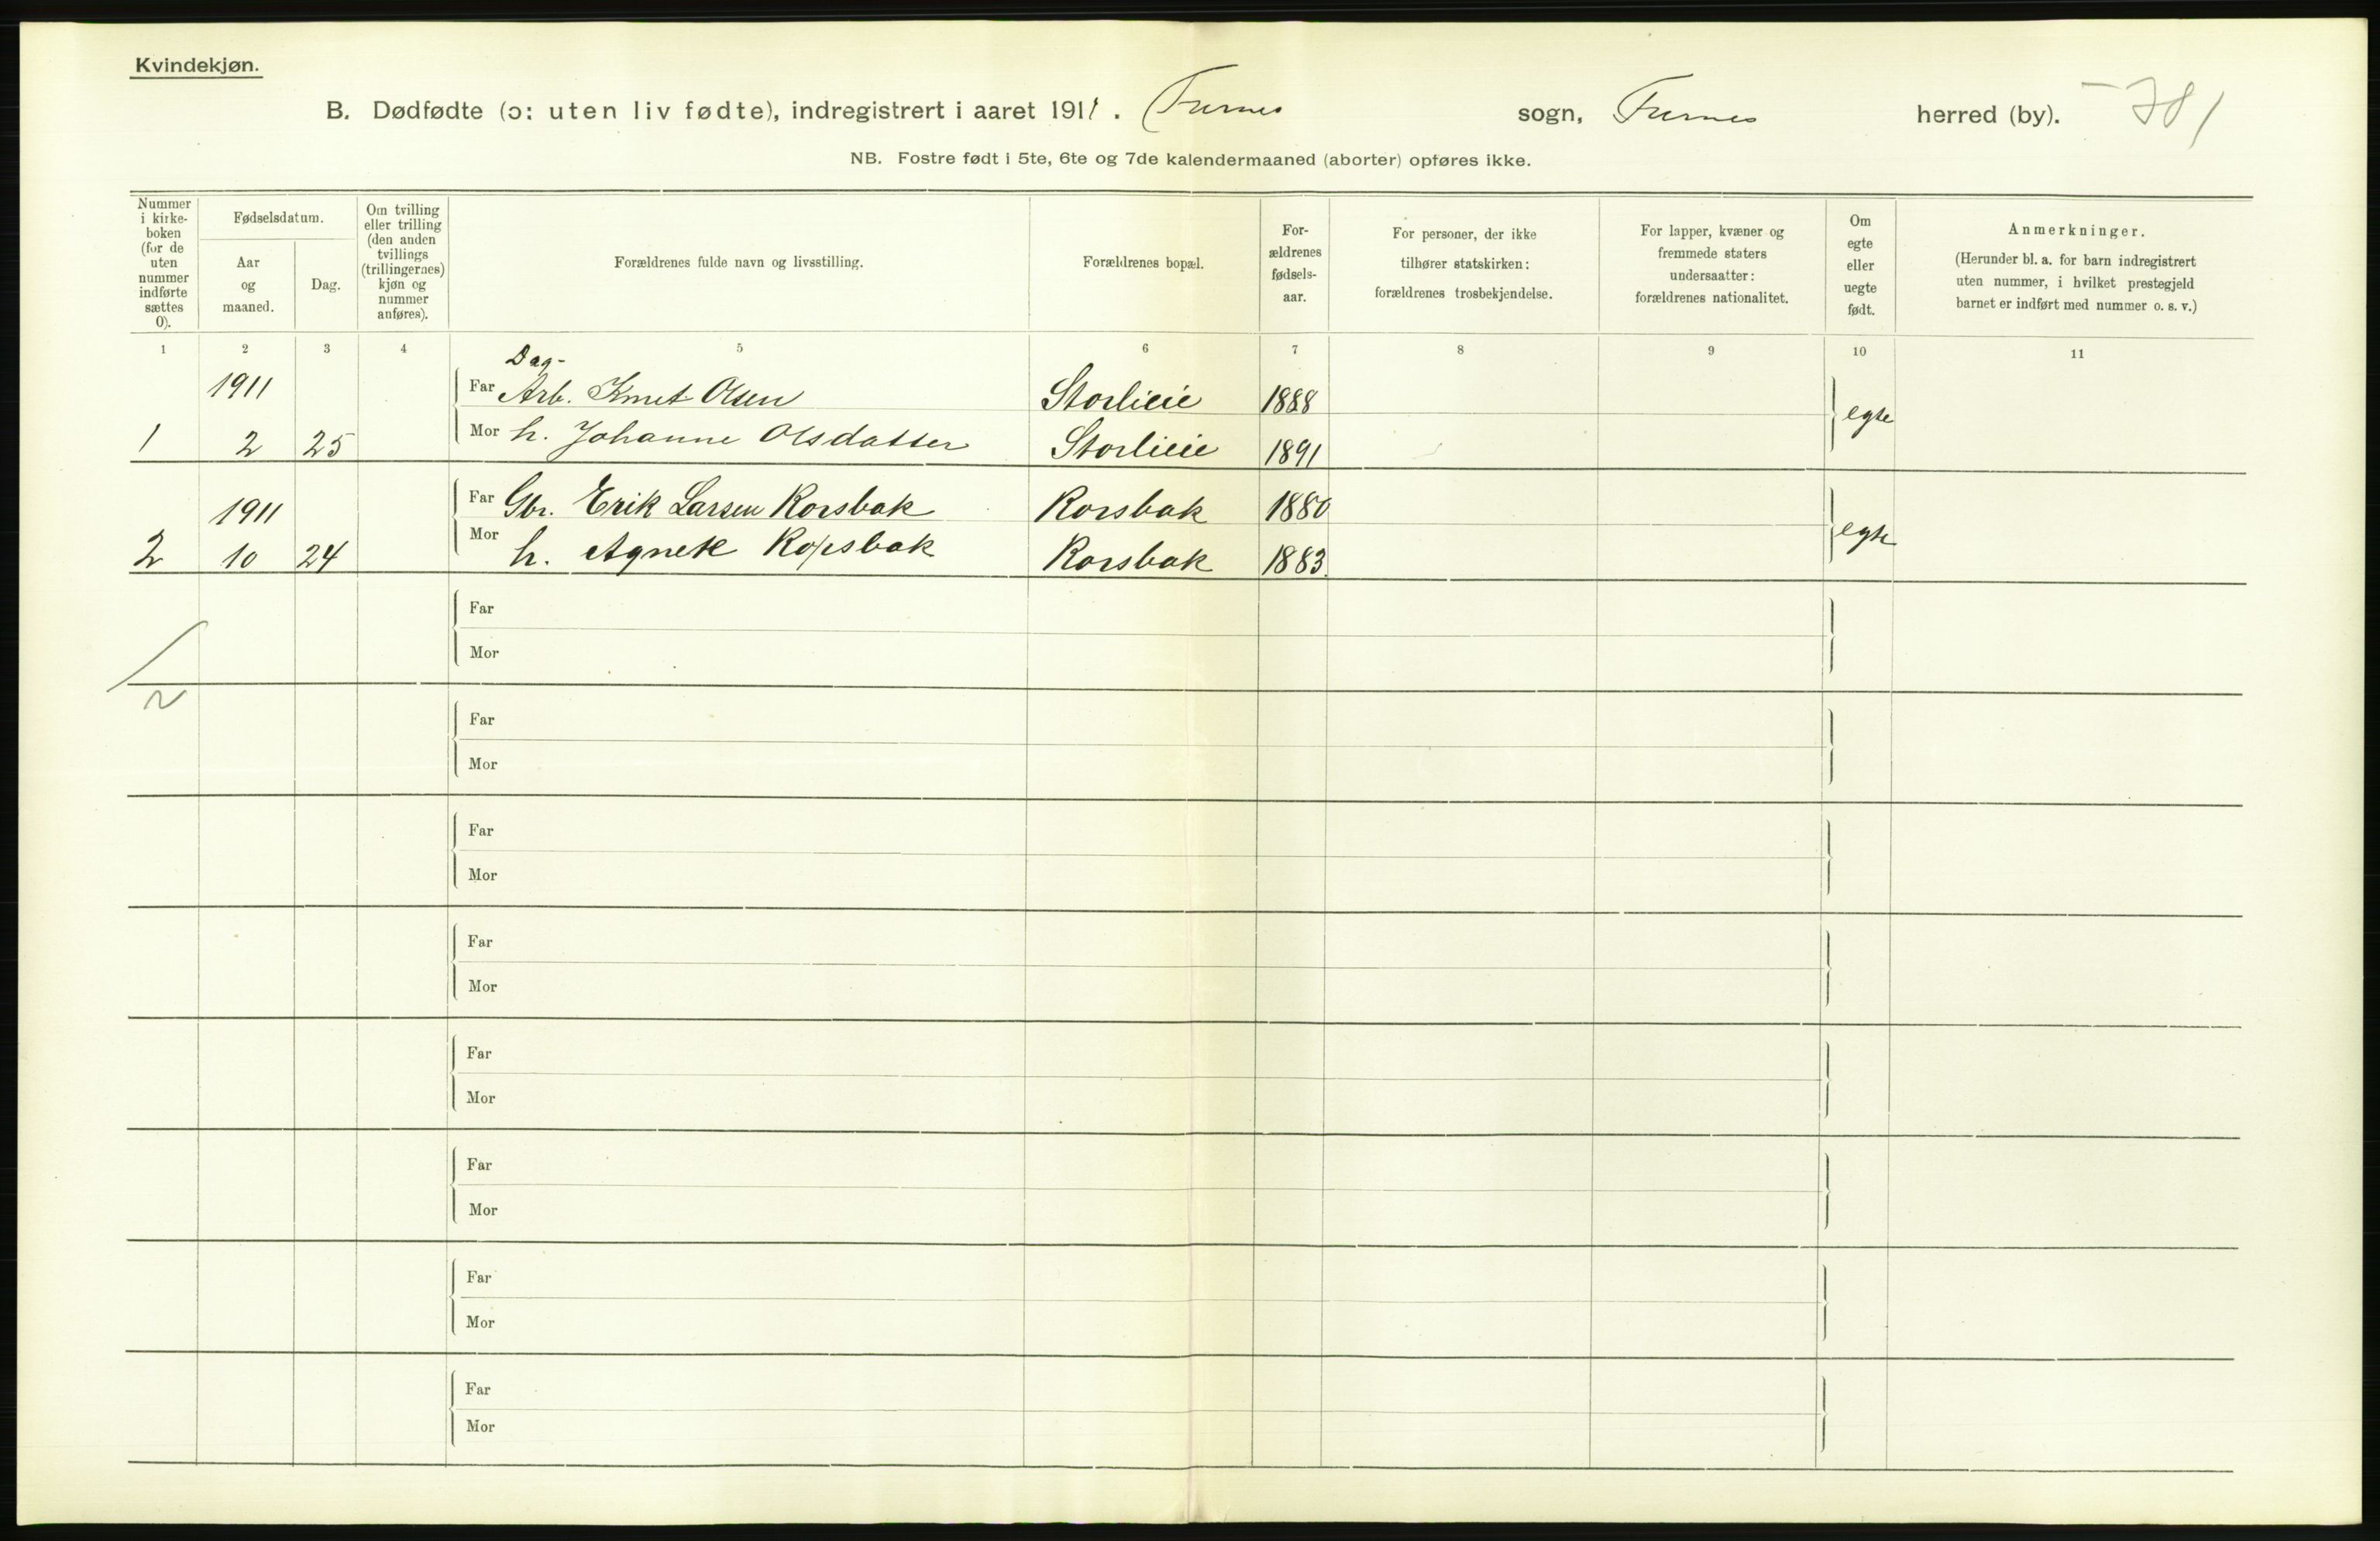 Kvindekjøn.
B. Dødfødte (ɔ: uten liv fødte), indregistrert i aaret 1911. Furnes sogn, Furnes herred (by). 781
NB. Fostre født i 5te, 6te og 7de kalendermaaned (aborter) opføres ikke.
Nummer i kirke-boken (for de uten nummer indførte sættes 0).
Fødselsdatum.
Aar og maaned.
Dag.
Om tvilling eller trilling (den anden tvillings (trillingernes) kjøn og nummer anføres).
Forældrenes fulde navn og livsstilling.
Forældrenes bopæl.
For-ældrenes fødsels-aar.
For personer, der ikke tilhører statskirken: forældrenes trosbekjendelse.
For lapper, kvæner og fremmede staters undersaatter: forældrenes nationalitet.
Om egte eller uegte født.
Anmerkninger.
(Herunder bl. a. for barn indregistrert uten nummer, i hvilket prestegjeld barnet er indført med nummer o. s. v.)
1 2 3 4 5 6 7 8 9 10 11
Dag-
1911 Far Arb. Knut Olsen Storlieie 1888 egte
1 2 25 Mor h. Johanne Olsdatter Storlieie 1891
1911 Far Gbr. Erik Larsen Korsbak Korsbak 1880 egte
2 10 24 Mor h. Agnete Korsbak Korsbak 1883
Far
Mor
2
Far
Mor
Far
Mor
Far
Mor
Far
Mor
Far
Mor
Far
Mor
Far
Mor